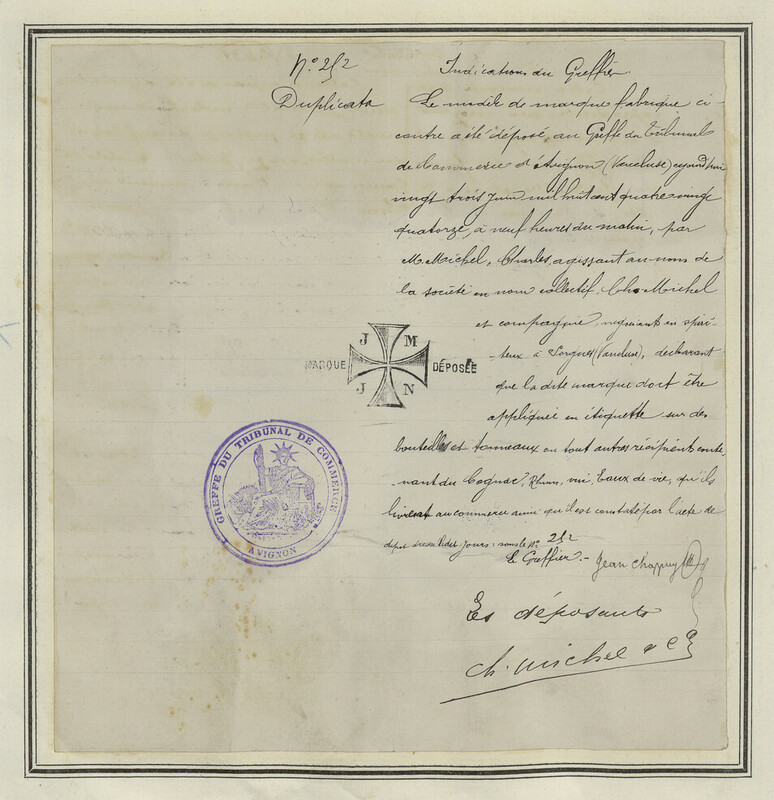 N° 252
Duplicata
Indications du Greffier.
Le modèle de marque fabrique ci-
contre a été déposé, au Greffe du Tribunal
de Commerce d'Avignon (Vaucluse) aujourd'hui
vingt trois juin mil huit cent quatre vingt
quatorze, à neuf heures du matin, par
M. Michel, Charles, agissant au nom de
la société en nom collectif, Ch. Michel
et compagnie, négociant en spiri-
-teux à Sorgues (Vaucluse), déclarant
que la dite marque doit être
appliquée en étiquette sur des
bouteilles et tonneaux en tout autres récipient conte
nant du Cognac, Rhum, vin, Eaux de vie, qu'ils
livrent au commerce ainsi qu'il est constaté par l'acte de
dépôt jours: sous le N° 252
Le Greffier.- Jean Chappuy
J M
MARQUE DÉPOSÉE
J N
GREFFE DU TRIBUNAL DE COMMERCE
AVIGNON
Les déposants
Ch. Michel & Cie